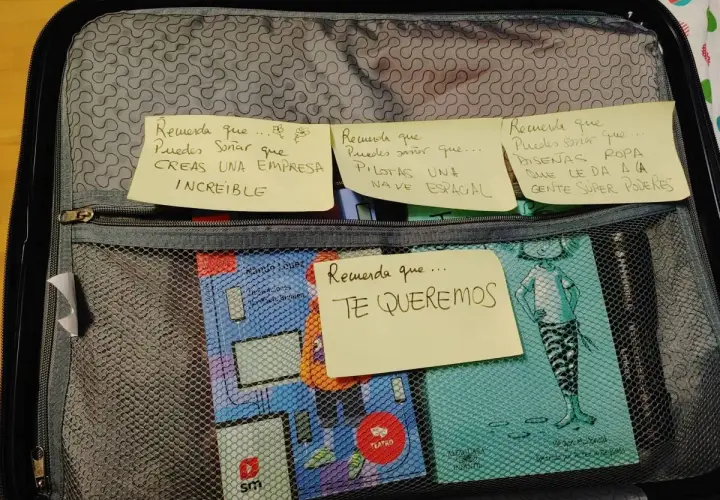 Recuerda que ...
Puedes soñar que
CREAS UNA EMPRESA
INCREIBLE
Recuerda que
Puedes soñar que...
PILOTAS UNA
NAVE ESPACIAL
Recuerda que
Puedes soñar que...
DISEÑAS ROPA
QUE LE DA A LA
GENTE SÚPER PODERES
Recuerda que ...
TE QUEREMOS
TEATRO
sm